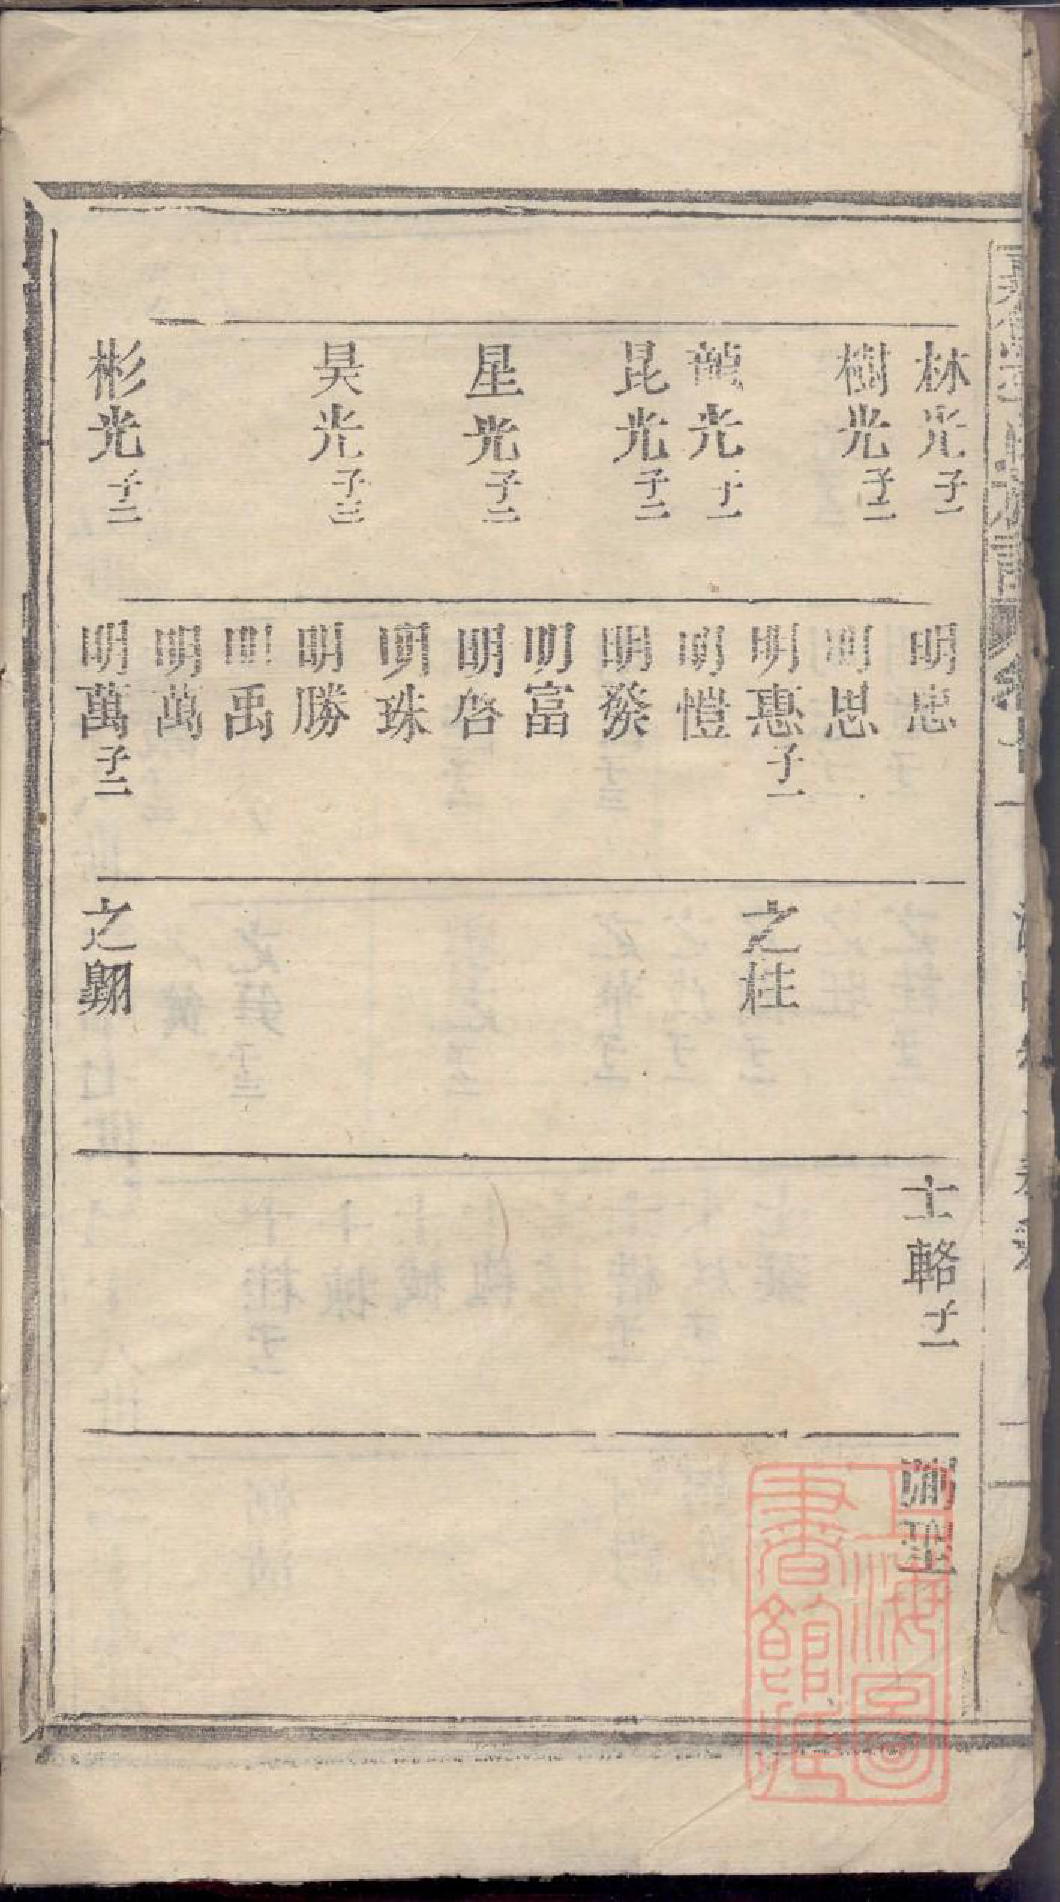 林光子一
樹光子二
龍光子一
昆光子二
星光子二
昊光子三
彬光子二
明忠
明思
明惠子一
明愷
明發
明富
明啓
明珠
明勝
明禹
明萬
明萬子二
之桂
之翺
士輅子一
上海圖
書館藏